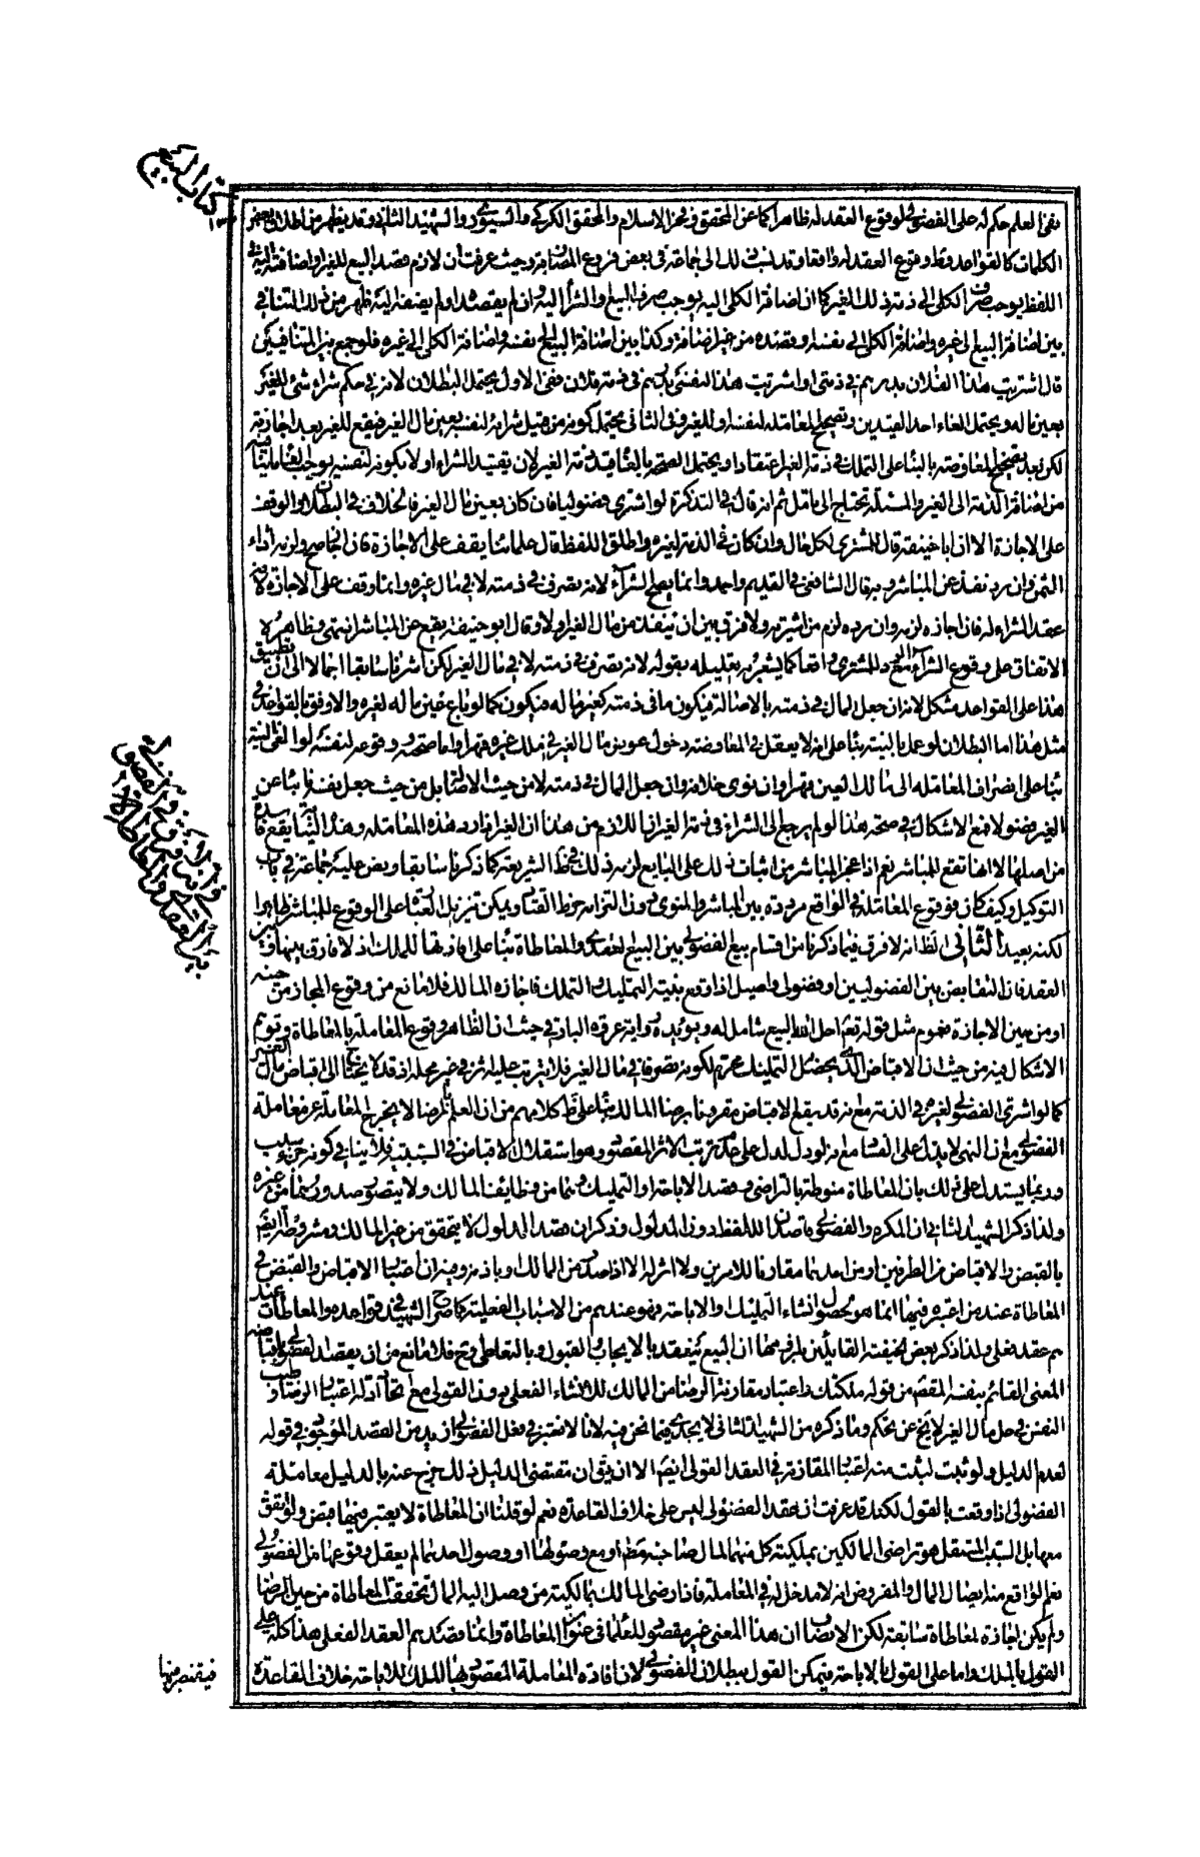 كتاب البيع
١٣٠
بنفي العلم حكم له على الفضولي لوقوع العقد له ظاهرا كما عن المحقق وفخر الاسلام والمحقق الكركي والسيوري والشهيد الثاني وقد يظهر من اطلاق بعض
الكلمات كالقواعد وط وقوع العقد له واقعا وقد نسب ذلك الى جماعة في بعض فروع المضاربة وحيث عرفت ان لازم قصد البيع للغير او اضافته اليه في
اللفظ يوجب صرف الكلي الى ذمة ذلك الغير كما ان اضافة الكلي اليه يوجب صرف البيع او الشراء اليه وان لم يقصده او لم يضفه اليه ظهر من ذلك التنافي
بين اضافة البيع الى غيره واضافة الكلي الى نفسه او قصده من غير اضافة وكذا بين اضافة البيع الى نفسه واضافة الكلي الى غيره فلو جمع بين المتنافيين كان
قال اشتريت هذا لفلان بدرهم في ذمتي او اشتريت هذا لنفسي بدرهم في ذمة فلان ففي الاول يحتمل البطلان لانه في حكم شراء شئ للغير
بعين ماله ويحتمل الغاء احد القيدين وتصحيح المعاملة لنفسه او للغير وفي الثاني يحتمل كونه من قبيل شرائه لنفسه بعين مال الغير فيقع للغير بعد اجازته
لكن بعد تصحيح المعاوضة بالبناء على التملك في ذمة الغير اعتقادا ويحتمل الصحة بالغاء قيد ذمة الغير لان تقييد الشراء اولا بكونه لنفسه يوجب الغاء ما ينافيه
من اضافة الذمة الى الغير والمسئلة تحتاج الى تامل ثم انه قال في التذكرة لو اشترى فضوليا فان كان بعين مال الغير فالخلاف في البطلان او الوقف
على الاجازة الا ان ابا حنيفة قال للمشتري بكل حال وان كان في الذمة لغيره واطلق اللفظ قال علمائنا يقف على الاجازة فان اجاز صح ولزمه اداء
الثمن وان رد نفذ عن المباشر وبه قال الشافعي في القديم واحمد وانما يصح الشراء لانه تصرف في ذمته لا في مال غيره وانما وقف على الاجازة لانه
عقد الشراء له فان اجازه لزمه وان رده لزم من اشتريه ولا فرق بين ان ينقد من مال الغير او لا وقال ابو حنيفة يقع عن المباشر انتهى وظاهره
الاتفاق على وقوع الشراء مع الرد للمشتري واقعا كما يشعر به تعليله بقوله لانه تصرف في ذمته لا في مال الغير لكن اشرنا سابقا اجمالا الى ان تطبيق
هذا على القواعد مشكل لانه ان جعل المال في ذمته بالاصالة فيكون ما في ذمته كعين ماله فيكون كما لو باع عين ماله لغيره والاوفق بالقواعد في
مثل هذا اما البطلان لو عمل بالنية بناء على انه لا يعقل في المعاوضة دخول عوض مال الغير في ملك غيره قهرا واما صحته ووقوعه لنفسه لو الغى النية
بناء على انصراف المعاملة الى مالك العين قهرا وان نوى خلافه وان جعل المال في ذمته لا من حيث الاصالة بل من حيث جعل نفسه نائبا عن
الغير فضولا فمع الاشكال في صحة هذا لو لم يرجع الى الشراء في ذمة الغير ان اللازم من هذا ان الغير اذا رد هذه المعاملة وهذه النيابة تقع فاسدة
من اصلها لا انها تقع للمباشر نعم اذا عجز المباشر من اثبات ذلك على البايع لزمه ذلك في ظاهر الشريعة كما ذكرنا سابقا ونص عليه جماعة في باب
التوكيل وكيف كان فوقوع المعاملة في الواقع مرددة بين المباشر والمنوي دون التزامه خرط القتاد ويمكن تنزيل العبارة على الوقوع للمباشر ظاهرا
لكنه بعيد الثاني الظ انه لا فرق فيما ذكرنا من اقسام بيع الفضولي بين البيع العقدي والمعاطاة بناء على افادتها للملك اذ لا فارق بينها وبين
العقد فان التقابض بين الفضوليين او فضولي واصيل اذا وقع بنية التمليك والتملك فاجازه المالك فلا مانع من وقوع المجاز من حينه
او من حين الاجازة فعموم مثل قوله تعم احل الله البيع شامل له ويؤيده رواية عروة البارقي حيث ان الظاهر وقوع المعاملة بالمعاطاة وتوهم
الاشكال فيه من حيث ان الاقباض الذي يحصل به التمليك محرم لكونه تصرفا في مال الغير فلا يترتب عليه اثر في غير محله اذ قد لا يحتاج الى اقباض مال الغير
كما لو اشترى الفضولي لغيره في الذمة مع انه قد يقع الاقباض مقرونا برضا المالك بناء على ظ كلامهم من ان العلم بالرضا لا يخرج المعاملة عن معاملة
الفضولي مع ان النهي لا يدل على الفساد مع انه لو دل لدل على عدم ترتب الاثر المقصود وهو استقلال الاقباض في السببية فلا ينافي كونه جزء سبب
وربما يستدل على ذلك بان المعاطاة منوطة بالتراضي وقصد الاباحة او التمليك وهما من وظايف المالك ولا يتصور صدورهما من غيره
ولذا ذكر الشهيد الثاني ان المكره والفضولي قاصدان للفظ دون المدلول وذكر ان قصد المدلول لا يتحقق من غير المالك ومشروطة ايضا
بالقبض والاقباض من الطرفين او من احدهما مقارنا للامرين ولا اثر له الا اذا صدر من المالك او باذنه وفيه ان اعتبار الاقباض والقبض في
المعاطاة عند من اعتبره فيها انما هو لحصول انشاء التمليك او الاباحة فهو عندهم من الاسباب الفعلية كما صرح الشهيد في قواعده والمعاطاة عند
هم عقد فعلي ولذا ذكر بعض الحنفية القائلين بلزومها ان البيع ينعقد بالايجاب والقبول وبالتعاطي وح فلا مانع من ان يقصد الفضولي باقباضه
المعنى القائم بنفسه المقصود من قوله ملكتك واعتبار مقارنة الرضا من المالك للانشاء الفعلي دون القولي مع اتحاد ادلة اعتبار الرضا وطيب
النفس في حل مال الغير لا يخ عن تحكم وما ذكره من الشهيد الثاني لا يجدي فيما نحن فيه لانا لا نعتبر في فعل الفضولي ازيد من القصد الموجود في قوله
لعدم الدليل ولو ثبت لثبت منه اعتبار المقارنة في العقد القولي ايضا الا ان يقال ان مقتضى الدليل ذلك خرج عنه بالدليل معاملة
الفضولي اذا وقعت بالقول لكنك قد عرفت ان عقد الفضولي ليس على خلاف القاعدة نعم لو قلنا ان المعاطاة لا يعتبر فيها قبض ولو اتفق
معها بل السبب المستقل هو تراضي المالكين بملكية كل منهما لمال صاحبه مطلقا او مع وصولهما او وصول احدهما لم يعقل وقوعها من الفضولي
نعم الواقع منه ايصال المال والمفروض انه لا مدخل له في المعاملة فاذا رضي المالك بمالكية من وصل اليه المال تحققت المعاطاة من حين الرضا
ولم يكن اجازة لمعاطاة سابقة لكن الانصاف ان هذا المعنى غير مقصود للعلماء في عنوان المعاطاة وانما قصدهم العقد الفعلي هذا كله على
القول بالملك واما على القول بالاباحة فيمكن القول ببطلان الفضولي لان افادة المعاملة المقصود بها الملك للاباحة خلاف القاعدة
فيقتصر فيها